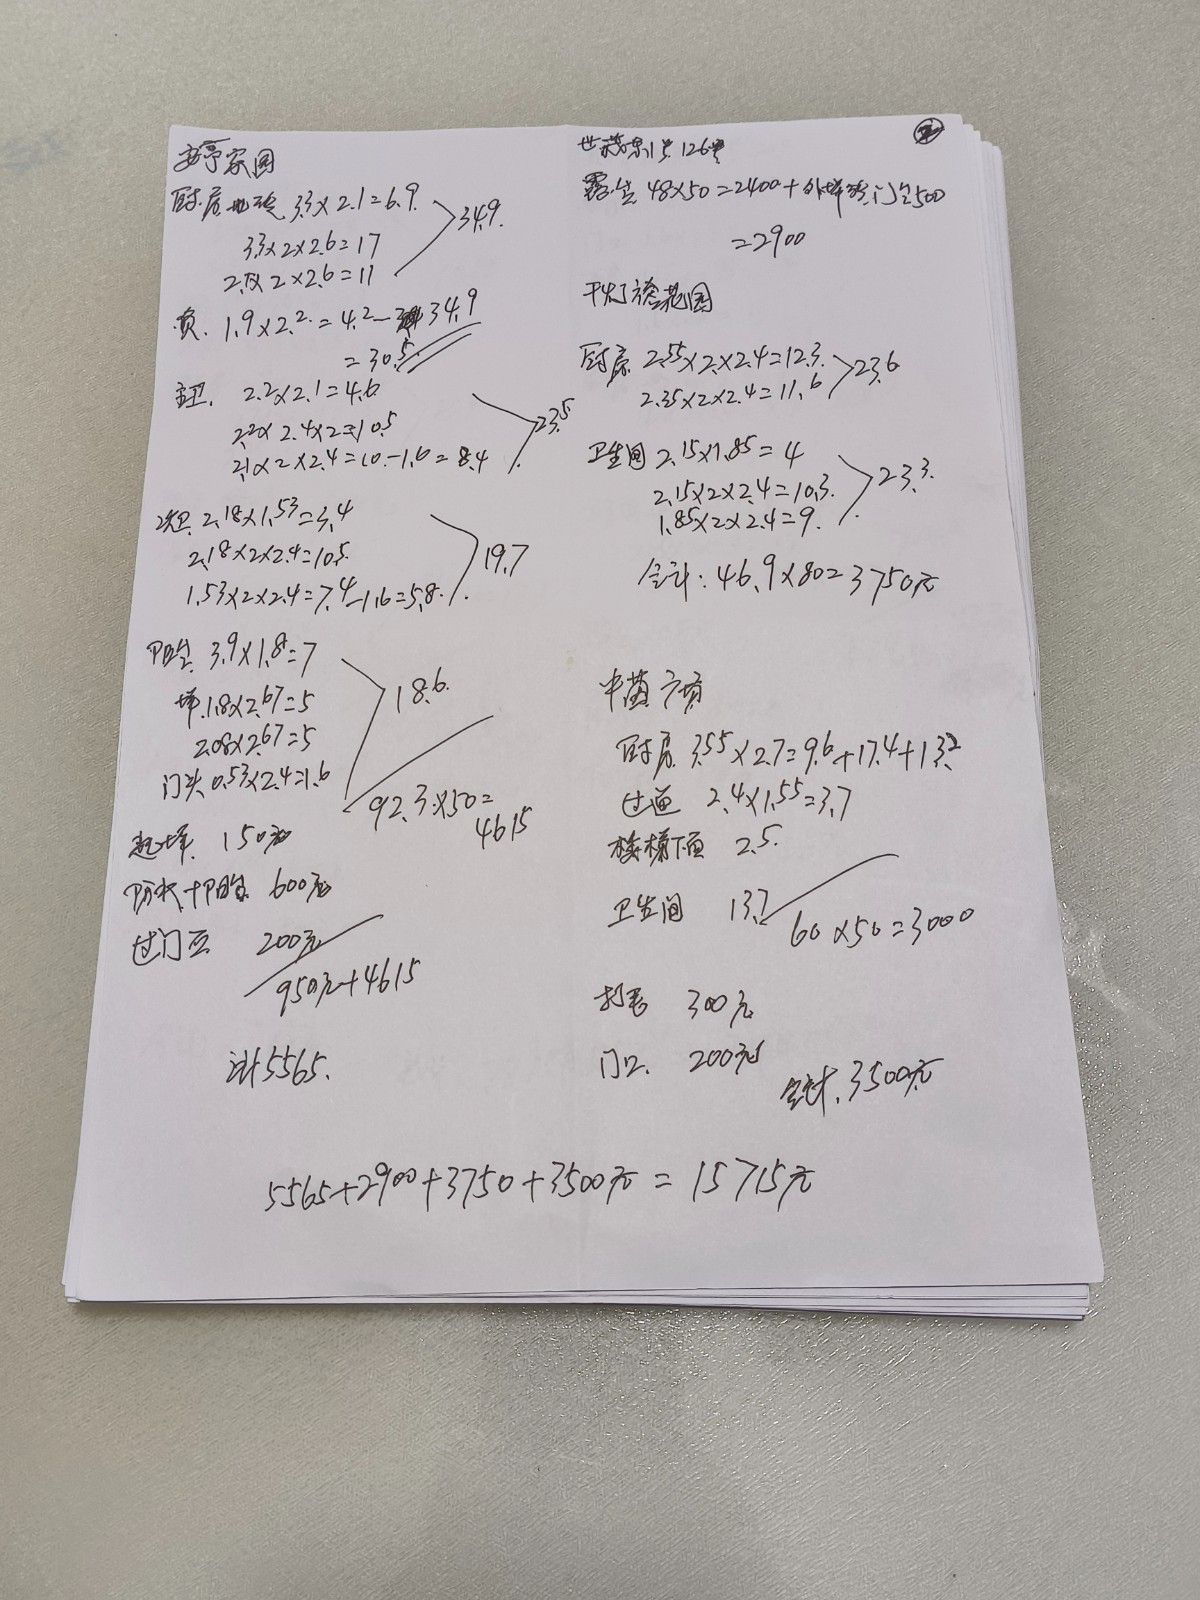 安亭家园
厨房地砖 3.3×2.1=6.9
3.3×2×2.6=17
2.1×2×2.6=11
34.9
1.9×2.2=4.2-34.9
=30.5
主卫. 2.2×2.1=4.6
2.2×2.4×2=10.5
2.1×2×2.4=10-1.6=8.4
23.5
次卫. 2.18×1.53=3.4
2.18×2×2.4=10.5
1.53×2×2.4=7.4-1.6=5.8
19.7
阳台 3.9×1.8=7
1.8×2.67=5
2.08×2.67=5
门头 0.53×2.4=1.6
18.6
92.3×50=
4615
150元
防水+阳台 600元
过门石 200元
950元+4615
计5565.
世茂 126
48×50=2400+ 门 500
=2900
花园
厨房 2.55×2×2.4=12.3
2.35×2×2.4=11.6
23.6
卫生间 2.15×1.85=4
2.15×2×2.4=10.3
1.85×2×2.4=9
23.3
合计:46.9×80=3750元
中茵广场
厨房 3.55×2.7=9.6+17.4+13.2
过道 2.4×1.55=3.7
楼梯下面 2.5
卫生间 13.7
60×50=3000
300元
门口. 200元
合计. 3500元
5565+2900+3750+3500元=15715元